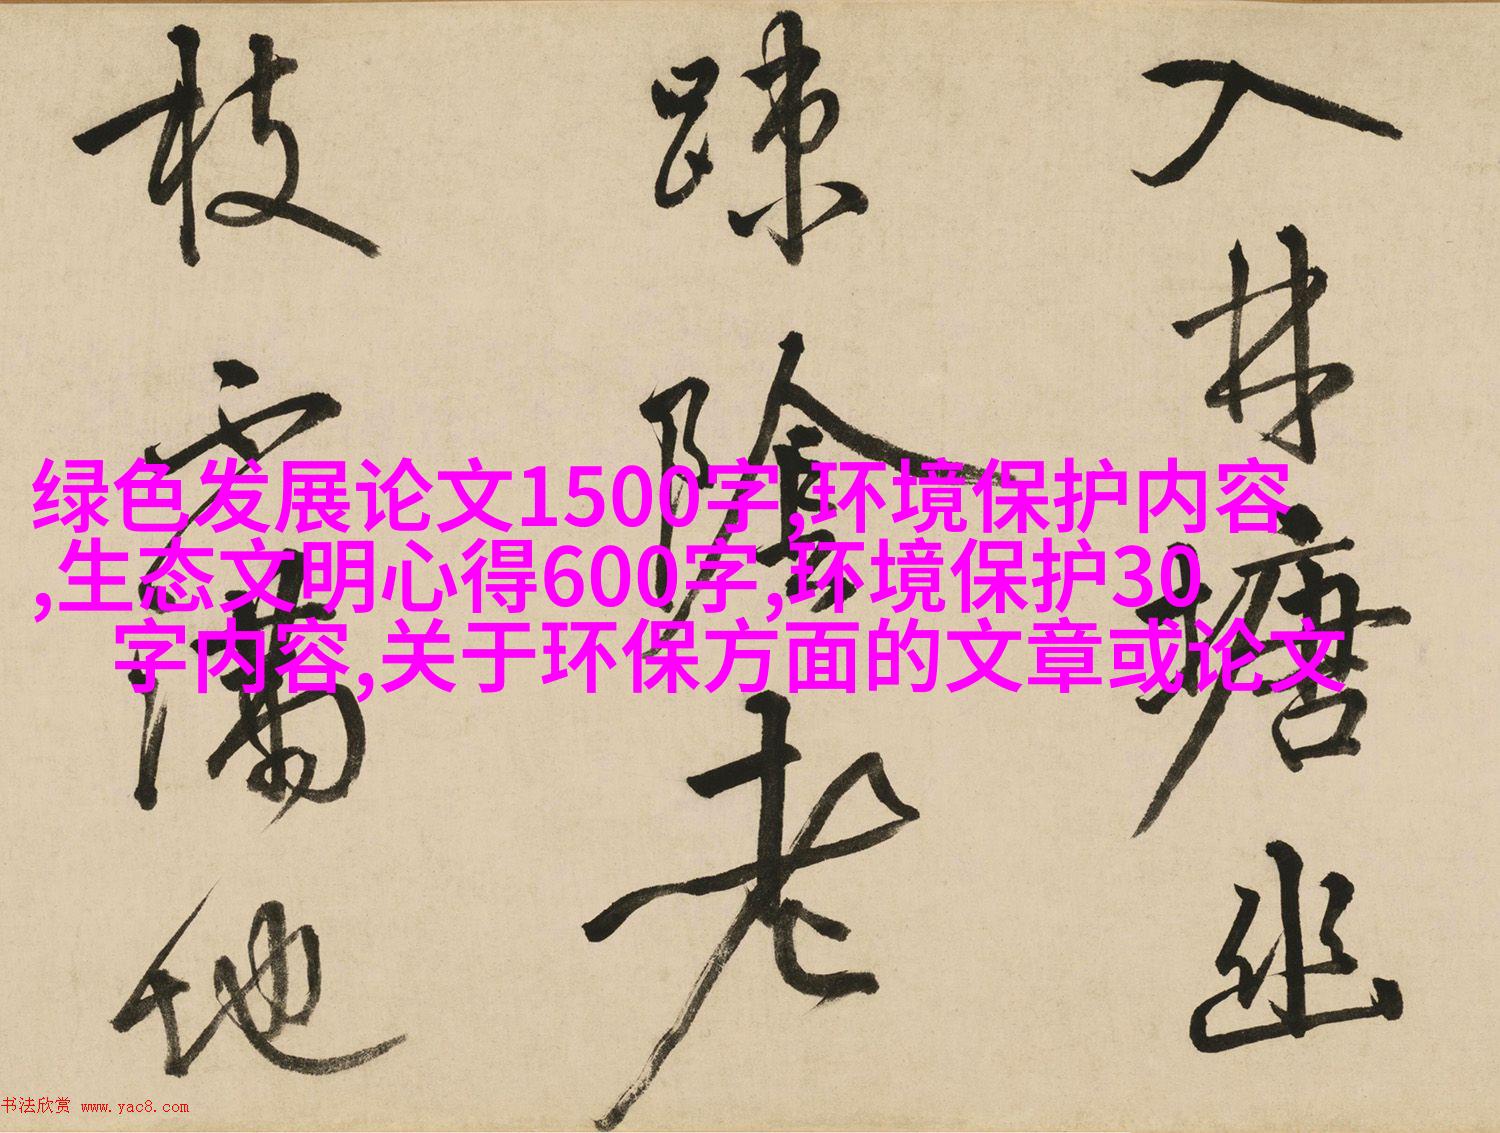 入林塘幽
踈陰老
枝滿地
绿色发展论文1500字,环境保护内容
,生态文明心得600字,环境保护30
字内容,关于环保方面的文章或论文
书法欣赏 www.yac8.com